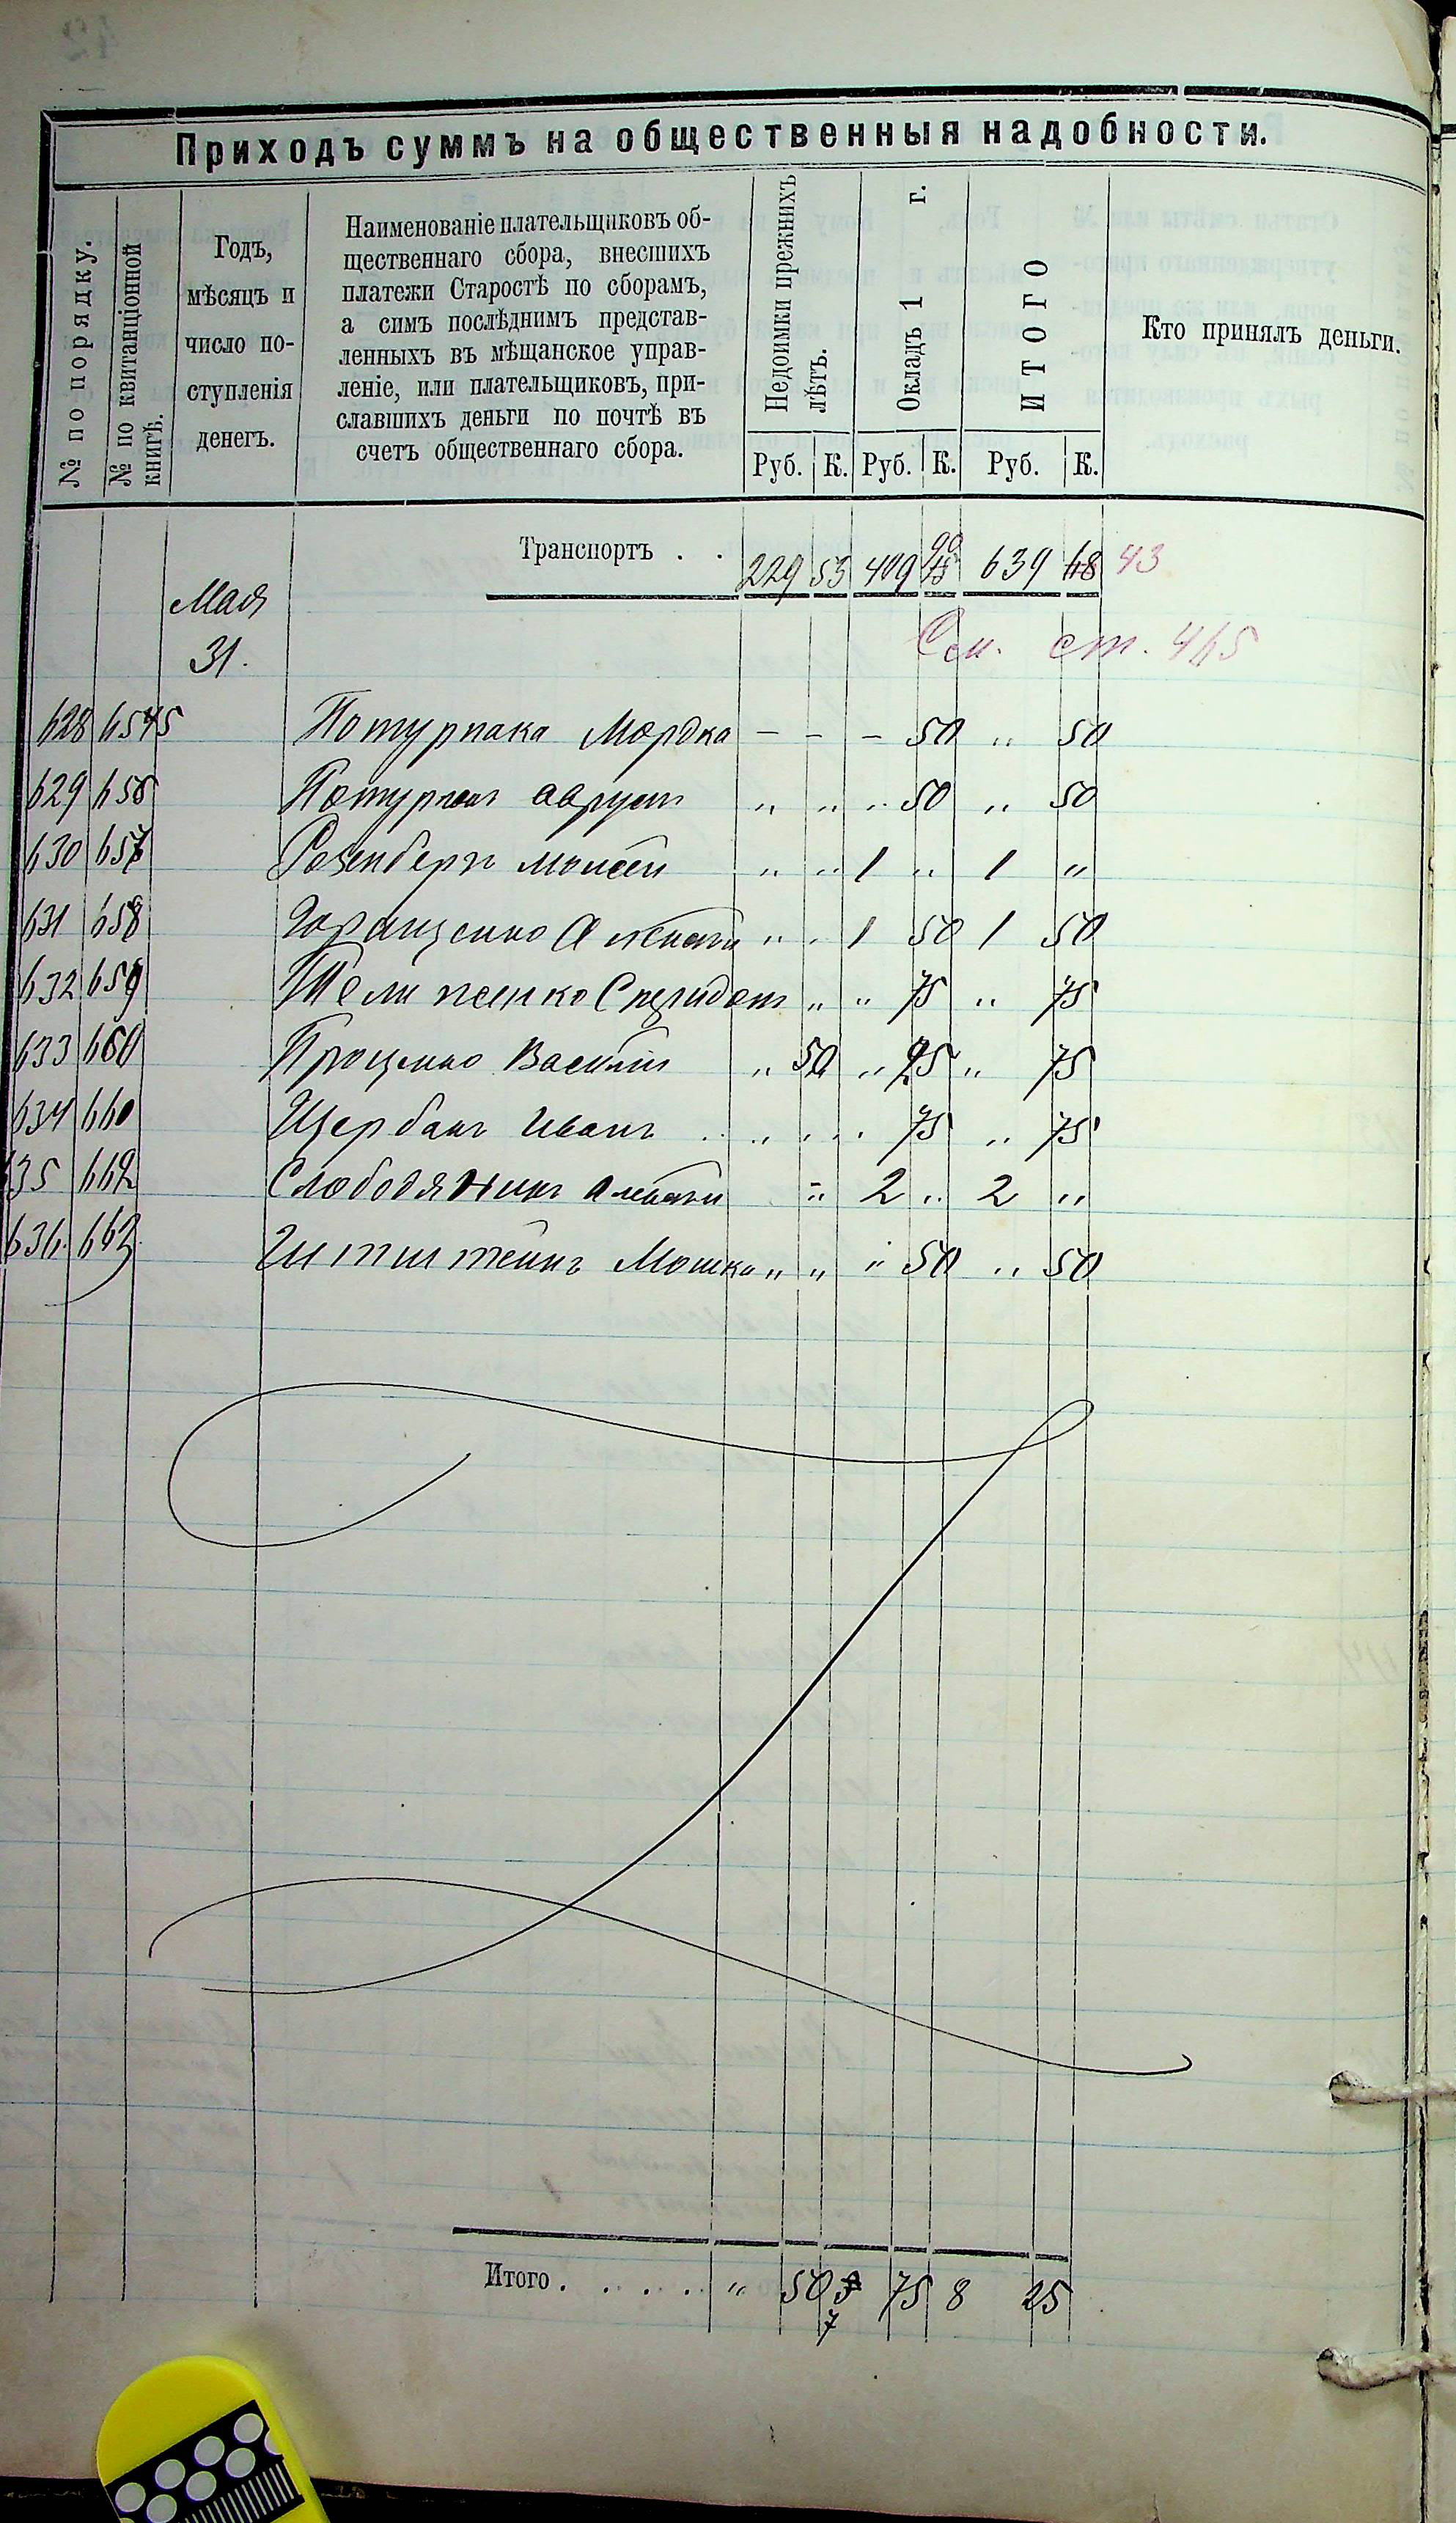 Приходъ суммъ на общественныя надобности.
№ по порядку.
№ по квитанціонной книгѣ.
Годъ,
мѣсяцъ и
число по-
ступленія
денегъ.
Наименованіе плательщиковъ об-
щественнаго сбора, внесшихъ
платежи Старостѣ по сборамъ,
а симъ послѣднимъ представ-
ленныхъ въ мѣщанское управ-
леніе, или плательщиковъ, при-
славшихъ деньги по почтѣ въ
счетъ общественнаго сбора.
Недоимки прежнихъ лѣтъ.
Окладъ 1 г.
ИТОГО
Кто принялъ деньги.
Руб. К. Руб. К. Руб. К.
Транспортъ . . 229 53 409 90 639 43
Мая
31.
См. ст. 465
628 Мордка – – – 50 „ 50
629 656 „ „ „ 50 „ 50
630 657 Розенбергъ Моисей „ „ 1 „ 1 „
631 658 „ „ 1 50 1 50
632 659 „ „ 75 „ 75
633 660 Проценко Василій „ 50 „ 25 „ 75
634 660 Щербакъ Иванъ „ „ „ 75 „ 75
635 662 Слободяникъ Алексѣй „ 2 „ 2 „
636 663 Мошка „ „ „ 50 „ 50
Итого . . . . . „ 50 7 75 8 25